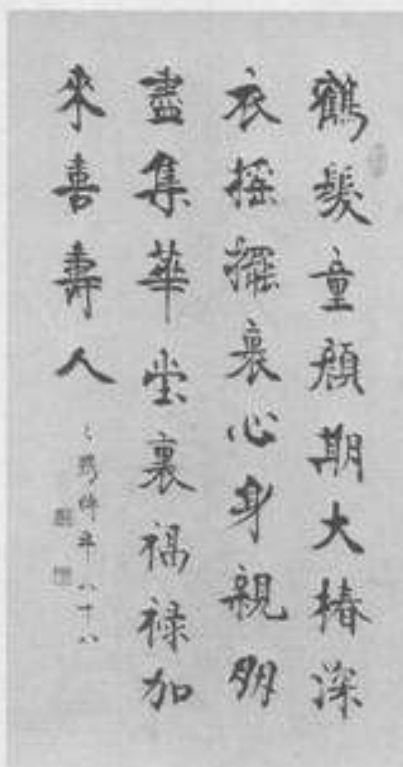 鶴髮童顔期大椿深
衣摇擺裏心身親朋
盡集華堂裏福禄加
來喜壽人
年八十八